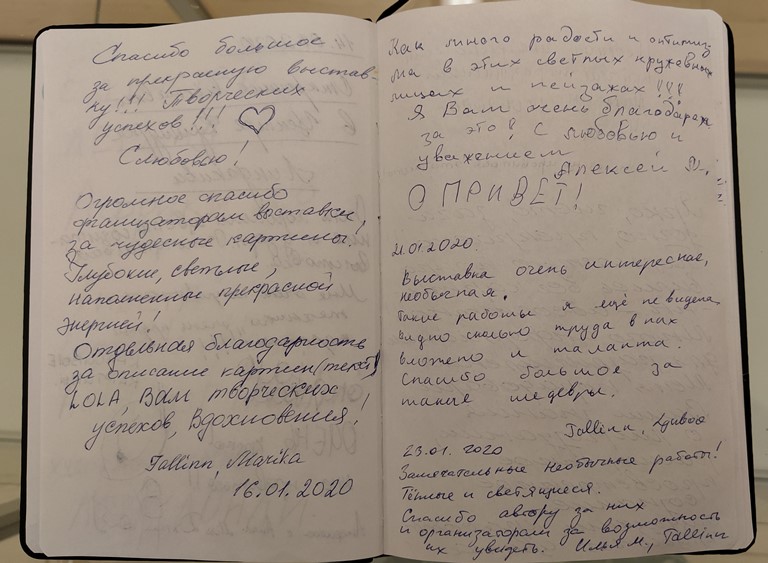 Спасибо большое
за прекрасную выстав-
ку!!! Творческих
успехов!!!
С любовью!
Огромное спасибо
организаторам выставки,
за чудесные картины!
Глубокие, светлые,
наполненные прекрасной
энергией!
Отдельная благодарность
за описание картин (текст)
LOLA, Вам творческих
успехов, Вдохновения!
Tallinn, Marika
16.01.2020
Как много радости и оптимиз-
ма в этих светлых кружевных
и пейзажах!!!
Я Вам очень благодарен
за это! С любовью и
уважением
Алексей
О ПРИВЕТ!
21.01.2020
Выставка очень интересная,
необычная.
Такие работы я ещё не видела
видно сколько труда в них
вложено и таланта.
Спасибо большое за
такие шедевры.
Tallinn,
23.01.2020
Замечательные необычные работы!
Тёплые и светящиеся.
Спасибо автору за них
и организаторам за возможность
их увидеть. Илья М., Tallinn